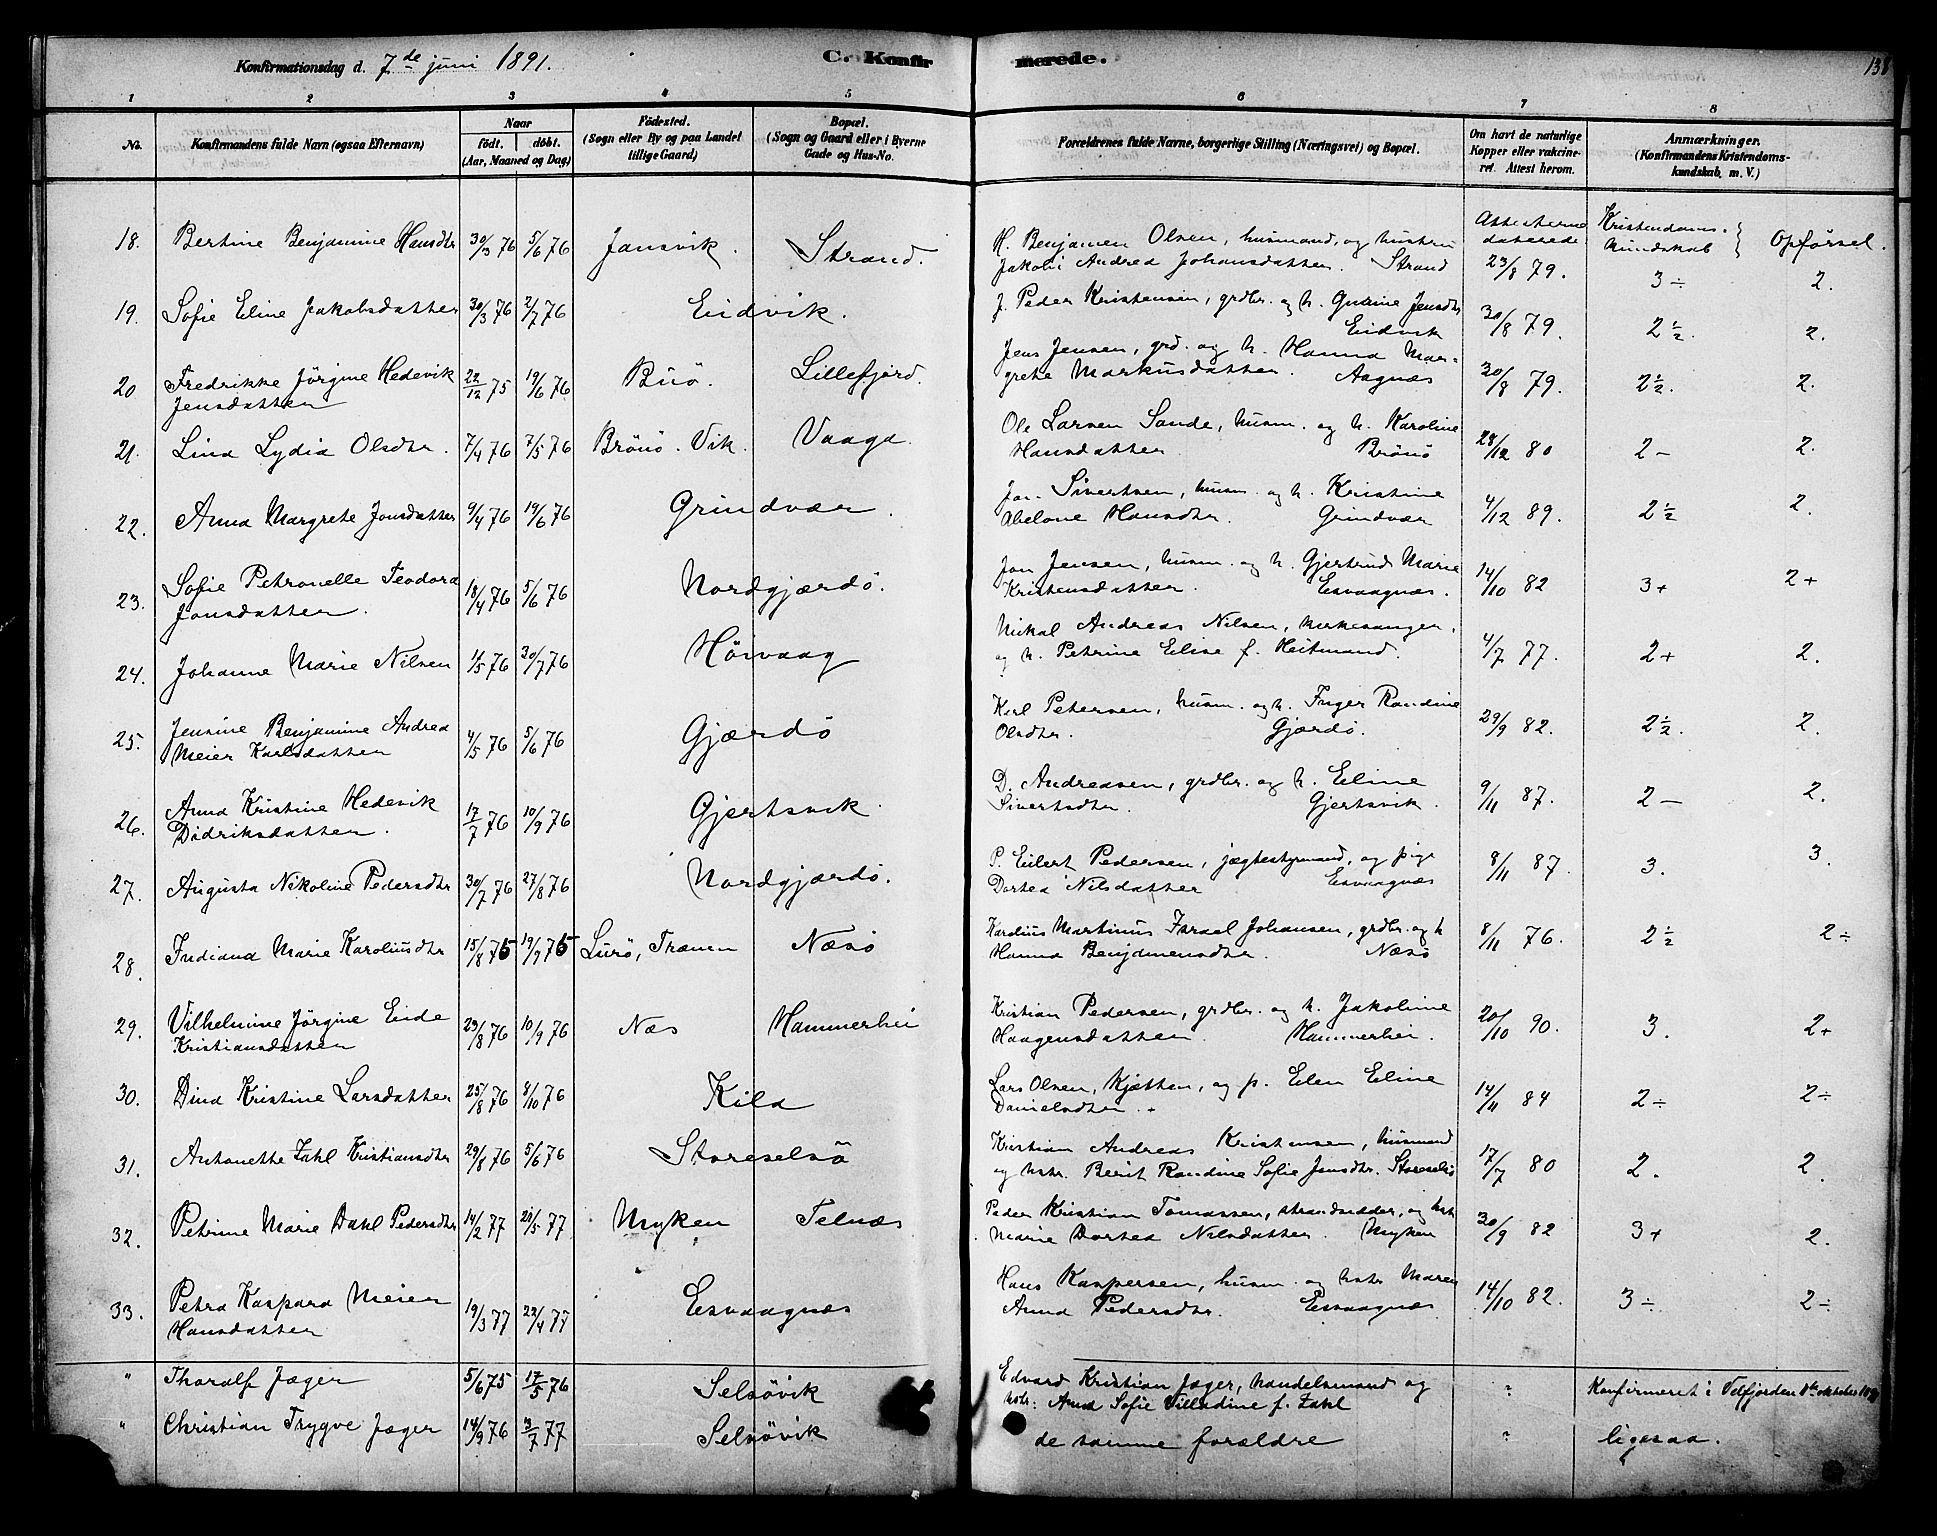 Konfirmationsdag d. 7de juni 1891. C. Konfirmerede. 138
1 2 3 4 5 6 7 8
No. Konfirmandens fulde Navn (ogsaa Efternavn) Naar født. døbt. (Aar, Maaned og Dag) Födested. (Sogn eller By og paa Landet tillige Gaard) Bopæl. (Sogn og Gaard eller i Byerne Gade og Hus-No. Forældrenes fulde Navne, borgerlige Stilling (Næringsvei) og Bopæl. Om havt de naturlige Kopper eller vakcineret. Attest herom. Anmærkninger. (Konfirmandens Kristendomskundskab, m. V.)
Attesterne daterede Kristendomskundskab } Opførsel.
18. Bertine Benjamine Hansdtr 30/3 76 5/6 76 Jansvik. Strand. H. Benjamin Olsen, husmand, og hustru
Jakobi Andrea Johansdatter. Strand 23/8 79. 3 ÷ 2.
19. Sofie Eline Jakobsdatter 30/3 76 2/7 76 Eidvik. J. Peder Kristensen, grdbr. og h. Gurine Jensdtr
Eidvik 30/8 79. 2 1/2. 2.
20 Fredrikke Jörgine Hedevik 22/12 75 19/6 76 Buö. Lillefjord. Jens Jensen, grd. og h. Hanna Mar-
Jensdatter grethe Markusdatter. Aagnæs 30/8 79. 2 1/2. 2.
21. Lina Lydia Olsdtr. 7/4 76 7/5 76 Brönö. Vik. Vaaga. Ole Larsen Sande, husm. og h. Karoline
Hansdatter. Brönö 28/12 80 2 - 2.
22. Anna Margrete Jonsdatter 9/4 76 19/6 76 Grindvær. Jon Sivertsen, husm. og h. Kristine
Abelone Hansdtr. Grindvær 4/12 89. 2 1/2 2.
23. Sofie Petronelle Teodora 18/4 76 5/6 76 Nordgjærdö. Jon Jensen, husm. og h. Gjertrud Marie
Jonsdatter. Kristensdatter. Esvaagnæs. 14/10 82 3+ 2+
24. Johanne Marie Nilsen 1/5 76 30/7 76 Höivaag Mikal Andreas Nilsen, kirkesanger,
og h. Petrine Elise f. Heitmand. 4/7 77. 2+ 2.
25. Jensine Benjamine Andrea 4/5 76 5/6 76 Gjærdö Karl Petersen, husm. og h. Inger Randine
Meier Karlsdatter Olsdtr. Gjærdö. 29/9 82. 2 1/2. 2.
26. Anna Kristine Hedevik 17/7 76 10/9 76 Gjertsvik. D. Andreasen, grdbr. og h. Eline
Didriksdatter. Sivertsdtr. Gjertsvik. 9/11 87. 2 - 2.
27. Augusta Nikoline Pedersdtr 30/7 76 27/8 76 Nordgjærdö. P. Eilert Pedersen, jægtestyrmand, og pige
Dortea Nilsdatter Esvaagnæs 8/11 87. 3. 3.
28. Indiana Marie Karoliusdtr 15/8 75 19/9 75 Lurö, Trænen Næsö Karolius Martinus Israel Johansen, grdbr. og h
Hanna Benjamensdtr. Næsö 8/11 76. 2 1/2 2 ÷
29. Vilhelmine Jörgine Eide 29/8 76 10/9 76 Næs Hammerhei Kristian Pedersen, grdbr. og h. Jakobine
Kristiansdatter Haagensdatter. Hammerhei. 20/10 90. 3. 2+
30. Dina Kristine Larsdatter 25/8 76 8/10 76 Kila Lars Olsen, Kjætten, og p. Elen Eline
Danielsdtr. 14/11 84 2 ÷ 2 ÷
31. Antonette Zahl Kristiansdtr 29/8 76 5/6 76 Storeselsö Kristian Andreas Kristensen, husmand
og hstr. Berit Randine Sofie Jensdtr. Storeselsö 17/7 80 2. 2.
32. Petrine Marie Dahl Pedersdtr 14/2 77 21/5 77 Myken Telnæs Peder Kristian Tomassen, strandsidder, og hstr
Marie Dortea Nilsdatter. Myken 30/9 82 3+ 2.
33. Petra Kaspara Meier 19/3 77 22/4 77 Esvaagnæs Hans Kaspersen, husm. og hstr Maren
Hansdatter Anna Pedersdtr. Esvaagnæs 14/10 82. 3 ÷. 2 ÷
" Tharalf Jæger 5/6 75 17/5 76 Selsövik Edvard Kristian Jæger, handelsmand og
hstr. Anna Sofie Tilladine f. Zahl ? Konfirmeret i Velfjorden
" Christian Trygve Jæger 14/9 76 3/7 77 Selsövik de samme forældre ? ligesaa.